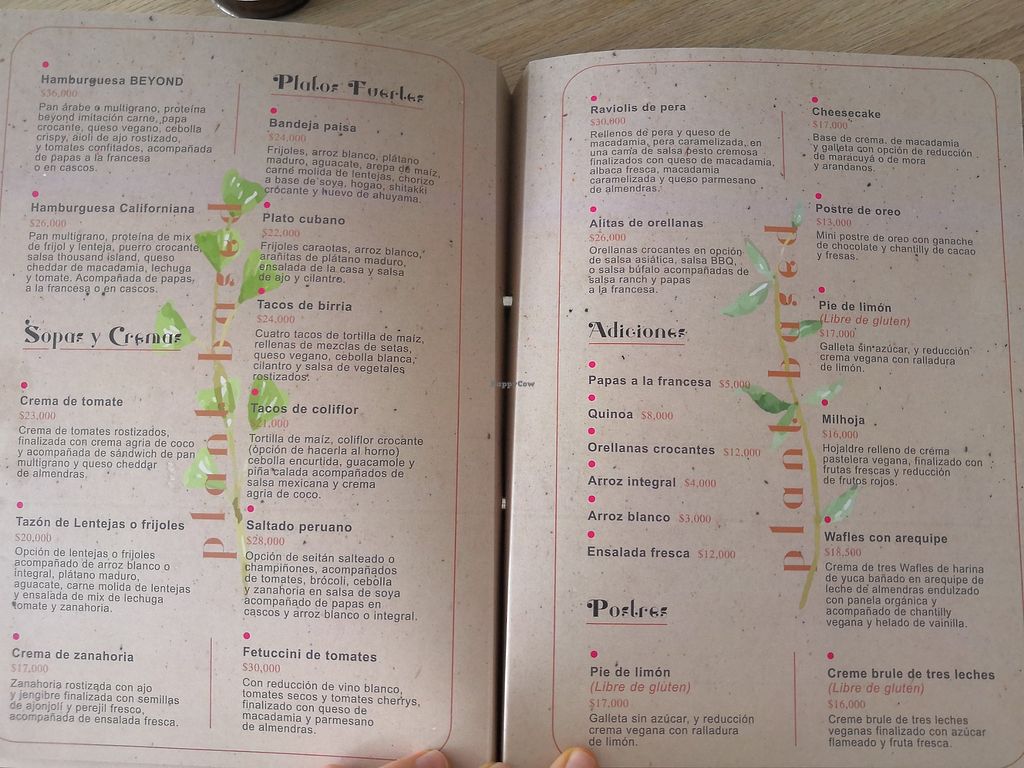 Hamburguesa BEYOND
$36,000
Pan árabe o multigrano, proteína
beyond imitación carne, papa
crocante, queso vegano, cebolla
crispy, aioli de ajo rostizado,
y tomates confitados, acompañada
de papas a la francesa
o en cascos.
Hamburguesa Californiana
$26,000
Pan multigrano, proteína de mix
de frijol y lenteja, puerro crocante,
salsa thousand island, queso
cheddar de macadamia, lechuga
y tomate. Acompañada de papas
a la francesa o en cascos.
Sopas y Cremas
Crema de tomate
$23,000
Crema de tomates rostizados,
finalizada con crema agria de coco
y acompañada de sándwich de pan
multigrano y queso cheddar
de almendras.
Tazón de Lentejas o frijoles
$20,000
Opción de lentejas o frijoles
acompañado de arroz blanco o
integral, plátano maduro,
aguacate, carne molida de lentejas
y ensalada de mix de lechuga
tomate y zanahoria.
Crema de zanahoria
$17,000
Zanahoria rostizada con ajo
y jengibre finalizada con semillas
de ajonjolí y perejil fresco,
acompañada de ensalada fresca.
plant based
Platos Fuertes
Bandeja paisa
$24,000
Frijoles, arroz blanco, plátano
maduro, aguacate, arepa de maíz,
carne molida de lentejas, chorizo
a base de soya, hogao, shitakki
crocante y huevo de ahuyama.
Plato cubano
$22,000
Frijoles caraotas, arroz blanco,
arañitas de plátano maduro,
ensalada de la casa y salsa
de ajo y cilantro.
Tacos de birria
$24,000
Cuatro tacos de tortilla de maíz,
rellenas de mezclas de setas,
queso vegano, cebolla blanca,
cilantro y salsa de vegetales
rostizados.
Tacos de coliflor
$21,000
Tortilla de maíz, coliflor crocante
(opción de hacerla al horno)
cebolla encurtida, guacamole y
piña calada acompañados de
salsa mexicana y crema
agria de coco.
Saltado peruano
$28,000
Opción de seitán salteado o
champiñones, acompañados
de tomates, brócoli, cebolla
y zanahoria en salsa de soya
acompañado de papas en
cascos y arroz blanco o integral.
Fetuccini de tomates
$30,000
Con reducción de vino blanco,
tomates secos y tomates cherrys,
finalizado con queso de
macadamia y parmesano
de almendras.
HappyCow
Raviolis de pera
$30,000
Rellenos de pera y queso de
macadamia, pera caramelizada, en
una cama de salsa pesto cremosa
finalizados con queso de macadamia,
albaca fresca, macadamia
caramelizada y queso parmesano
de almendras.
Alitas de orellanas
$26,000
Orellanas crocantes en opción
de salsa asiática, salsa BBQ,
o salsa búfalo acompañadas de
salsa ranch y papas
a la francesa.
Adiciones
Papas a la francesa $5,000
Quinoa $8,000
Orellanas crocantes $12,000
Arroz integral $4,000
Arroz blanco $3,000
Ensalada fresca $12,000
Postres
Pie de limón
(Libre de glúten)
$17,000
Galleta sin azúcar, y reducción
crema vegana con ralladura
de limón.
plant based
Cheesecake
$17,000
Base de crema, de macadamia
y galleta con opción de reducción
de maracuyá o de mora
y arandanos.
Postre de oreo
$13,000
Mini postre de oreo con ganache
de chocolate y chantilly de cacao
y fresas.
Pie de limón
(Libre de gluten)
$17,000
Galleta sin azúcar, y reducción
crema vegana con ralladura
de limón.
Milhoja
$16,000
Hojaldre relleno de créma
pastelera vegana, finalizado con
frutas frescas y reducción
de frutos rojos.
Wafles con arequipe
$18,500
Crema de tres Wafles de harina
de yuca bañado en arequipe de
leche de almendras endulzado
con panela orgánica y
acompañado de chantilly
vegana y helado de vainilla.
Creme brule de tres leches
(Libre de gluten)
$16,000
Creme brule de tres leches
veganas finalizado con azúcar
flameado y fruta fresca.